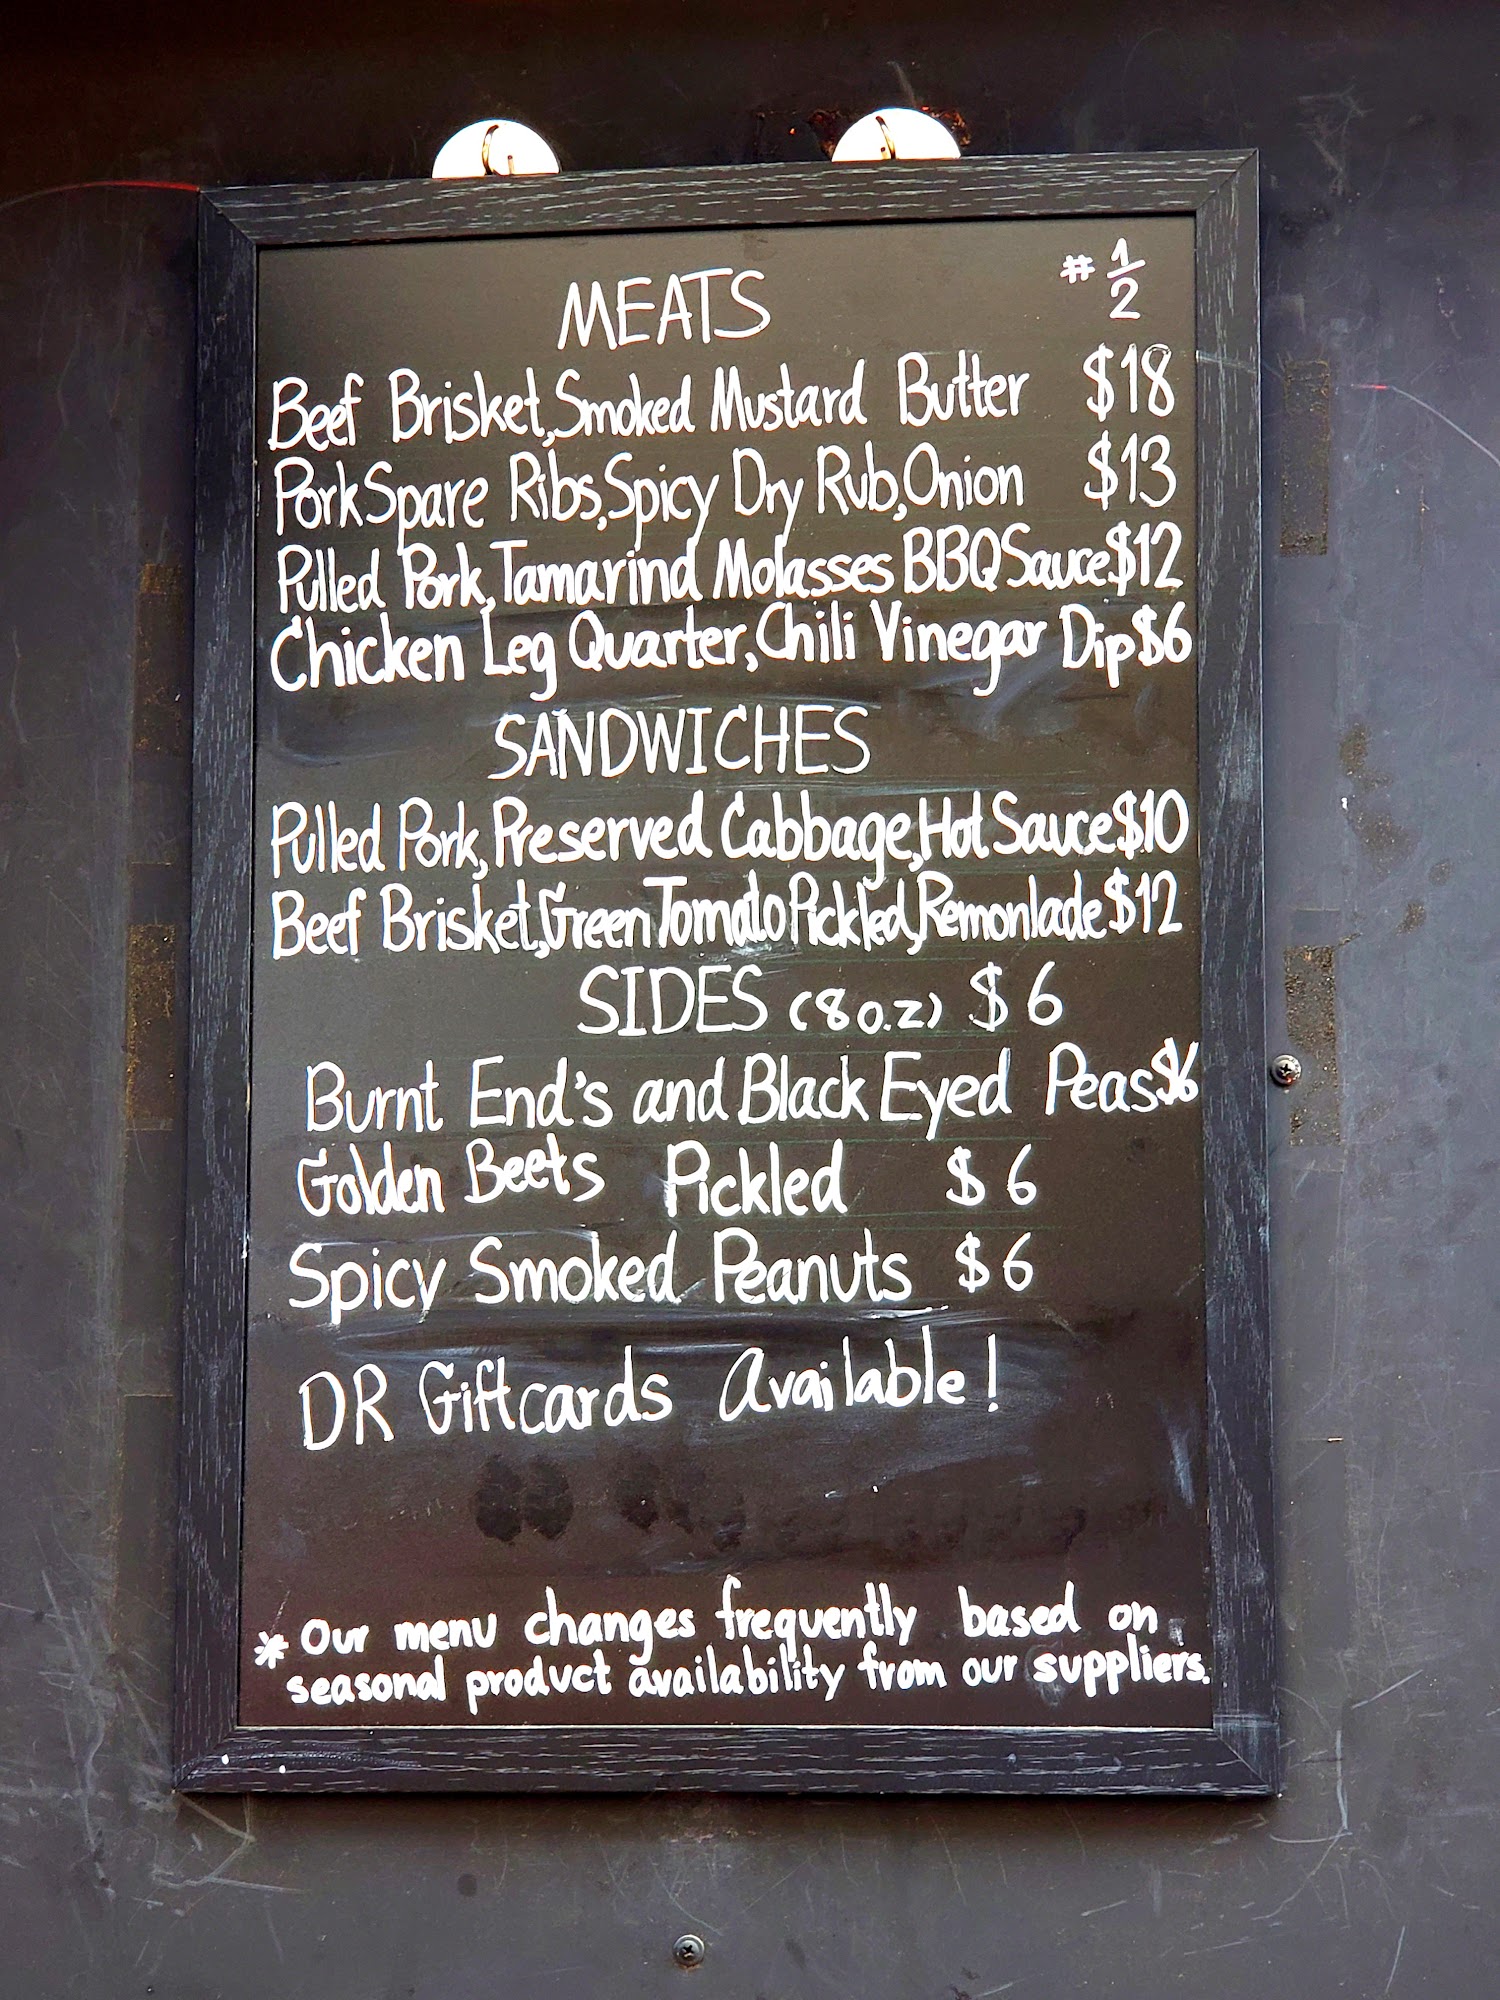 MEATS # 1/2
Beef Brisket, Smoked Mustard Butter $18
Pork Spare Ribs, Spicy Dry Rub, Onion $13
Pulled Pork, Tamarind Molasses BBQ Sauce $12
Chicken Leg Quarter, Chili Vinegar Dip $6
SANDWICHES
Pulled Pork, Preserved Cabbage, Hot Sauce $10
Beef Brisket, Green Tomato Pickled, Remonlade $12
SIDES (8 o.z) $6
Burnt End's and Black Eyed Peas $6
Golden Beets Pickled $6
Spicy Smoked Peanuts $6
DR Giftcards Available!
* Our menu changes frequently based on
seasonal product availability from our suppliers.